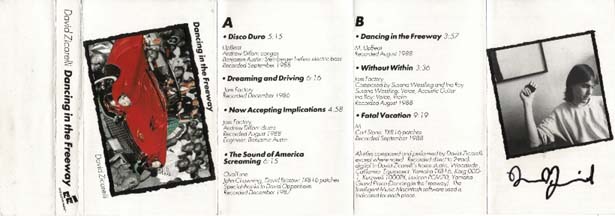 David Zicarelli Dancing in the Freeway
Dancing in the Freeway
David Zicarelli
A
• Disco Duro 5:15
UpBeat
Andrew Dillon: congas
Recorded September 1988
• Dreaming and Driving 6:16
Jam Factory
Recorded December 1986
• Now Accepting Implications 4:58
Jam Factory
Andrew Dillon: drums
Recorded August 1988
Engineer: Benjamin Austin
• The Sound of America
Screaming 6:15
OvalTune
John Chowning, David Bristow: TX816 patches
Special thanks to Daniel Oppenheim
Recorded December 1987
B
• Dancing in the Freeway 3:57
M, UpBeat
Recorded August 1988
• Without Within 3:36
Jam Factory
Composed by Susana Wessling and Ira Ray
Susana Wessling: Voice, Acoustic Guitar
Ira Ray: Voice, Violin
Recorded August 1988
• Fatal Vacation 9:19
M
Carl Stone: TX816 patches
Recorded September 1988
All titles composed and performed by David Zicarelli
except where noted. Recorded direct to 2-track
digital in David Zicarelli's house
California. Equipment: Yamaha TX816, Korg
Kurzweil 1000PX, Lexicon PCM70, Yamaha
Grand Piano (Dancing in the Freeway). The
Intelligent Music Macintosh software used is
indicated for each piece.